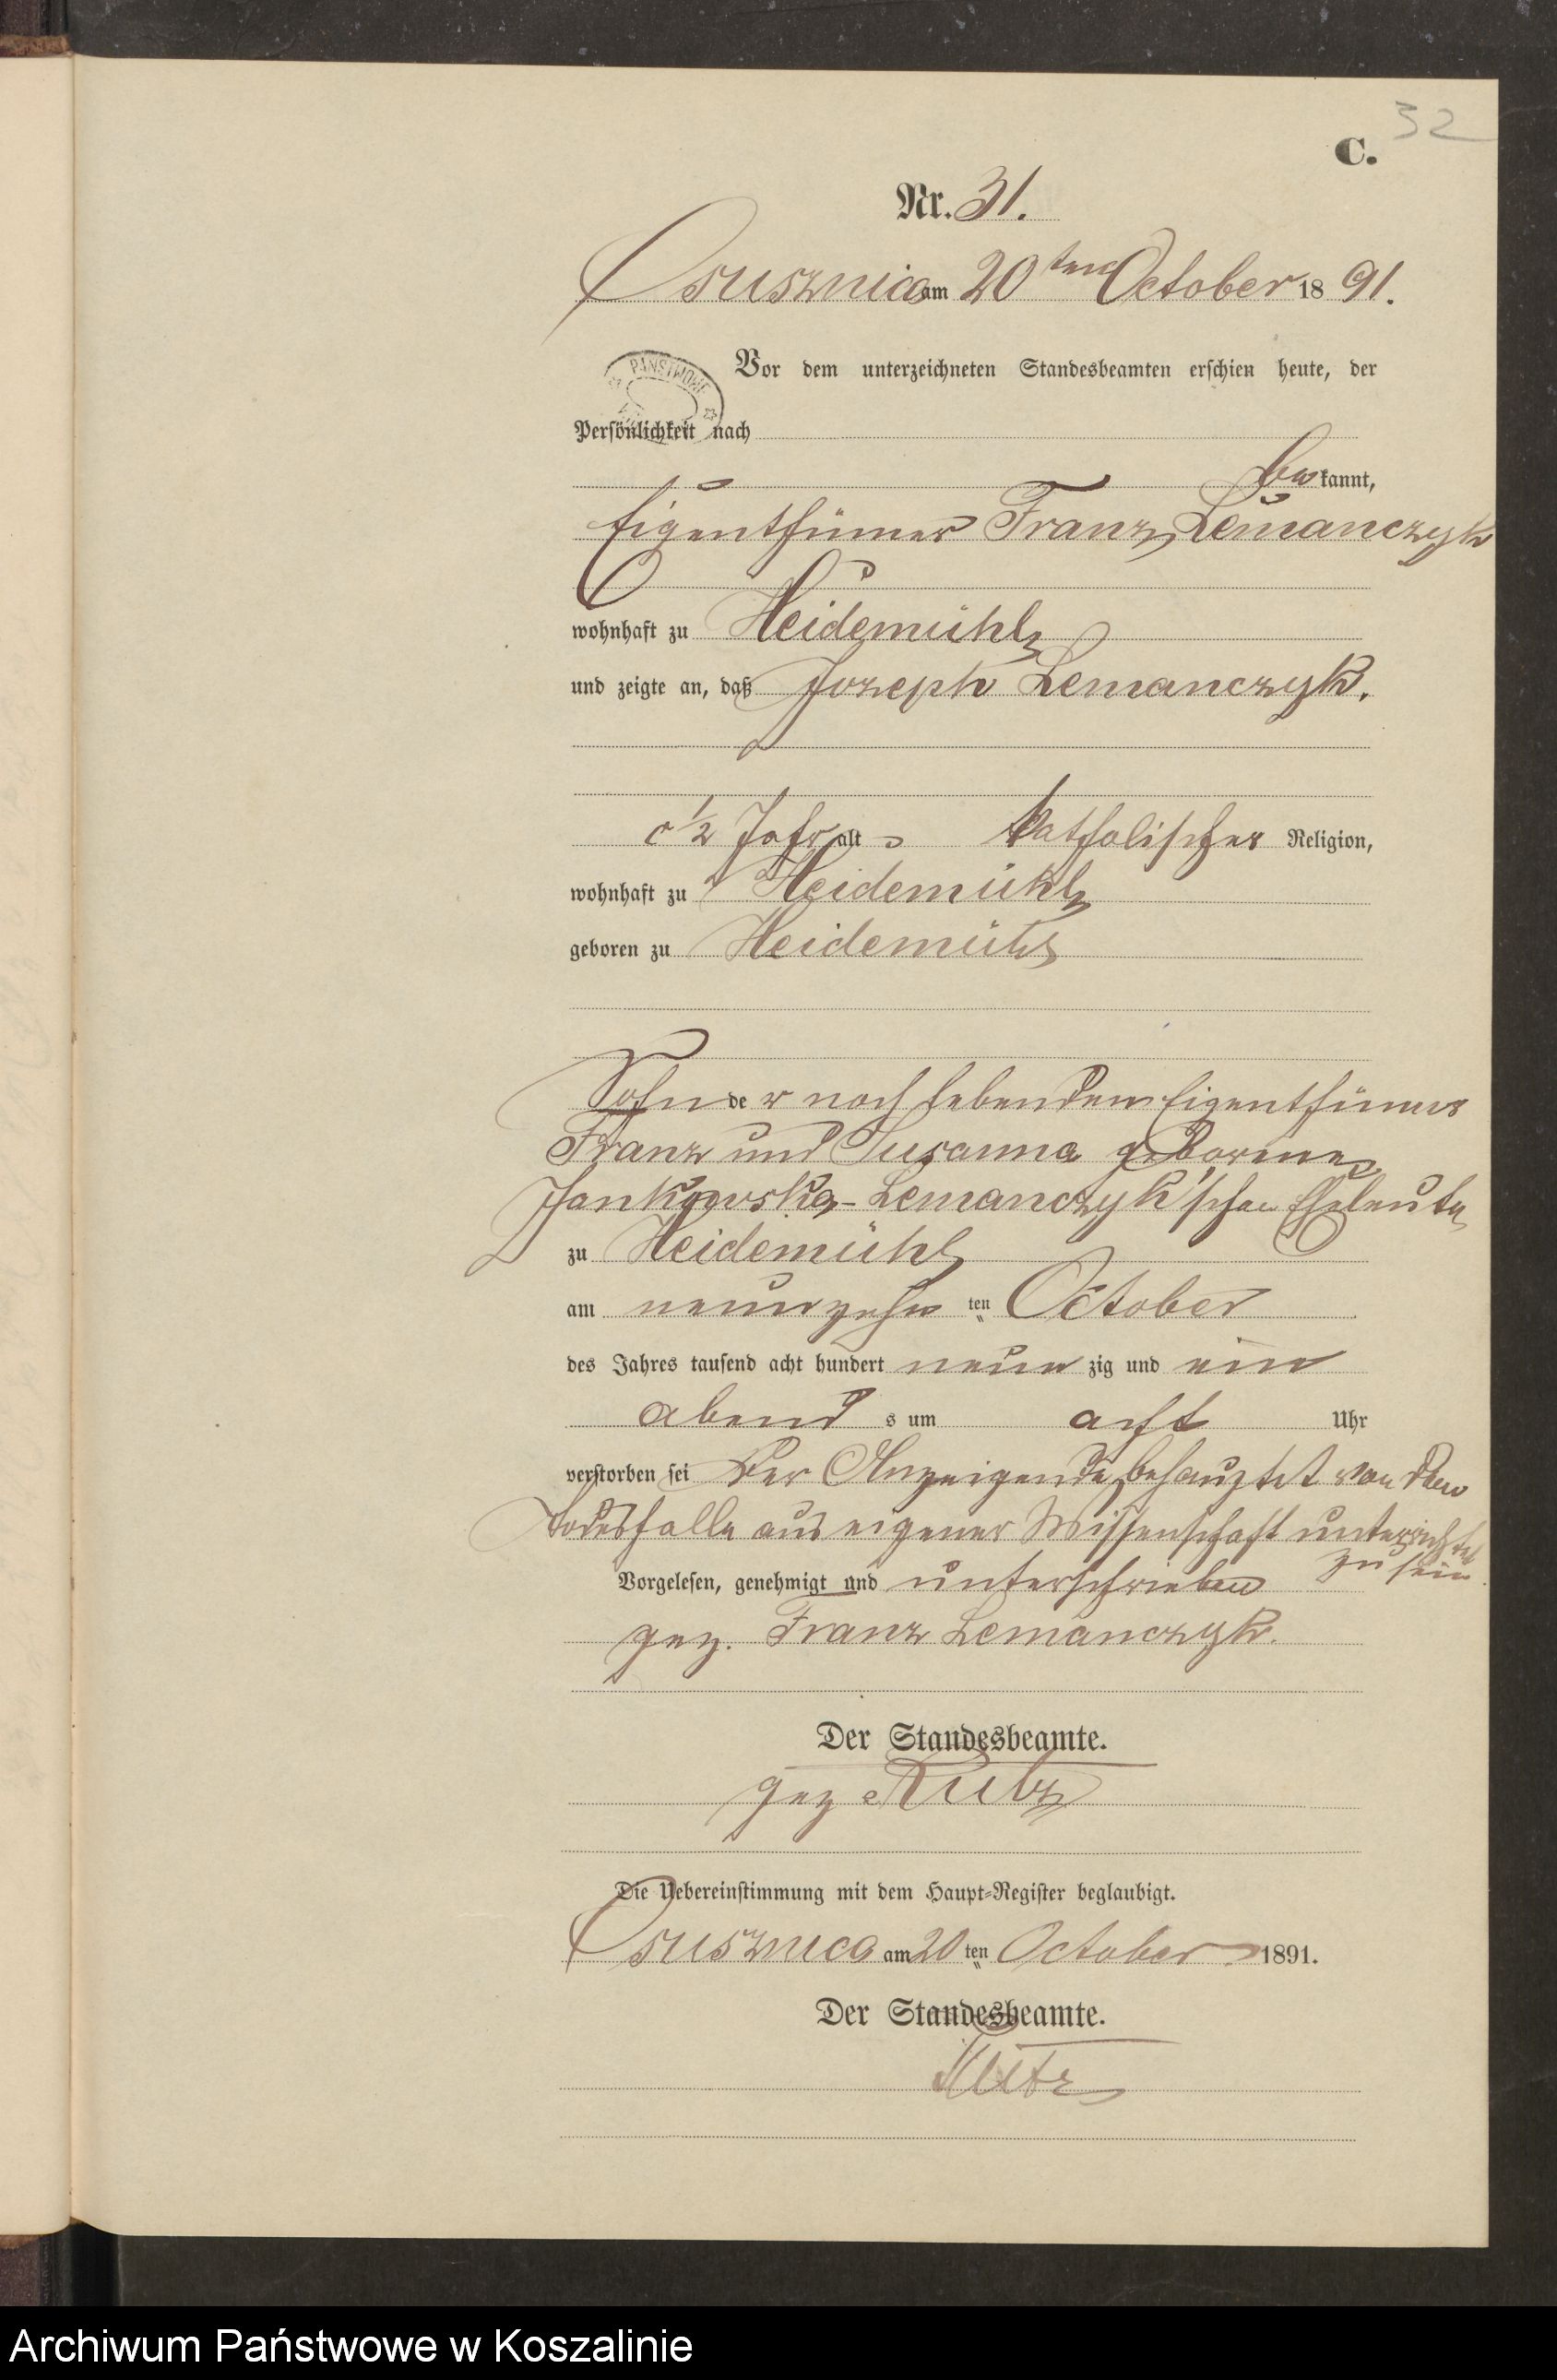 32
C.
Nr. 31.
Osusznica am 20ten October 18 91.
PAŃSTWOWE
Vor dem unterzeichneten Standesbeamten erschien heute, der
Persönlichkeit nach
bekannt,
Eigenthümer Franz Lemanczyk
wohnhaft zu Heidemühle
und zeigte an, daß Jozeph Lemanczyk.
c 1/2 Jahr alt katholischer Religion,
wohnhaft zu Heidemühle
geboren zu Heidemühle
Sohn der noch lebenden Eigenthümer
Franz und Susanna geborene
Jankowska-Lemanczyk'schen Eheleute
zu Heidemühle
am neunzehn ten October
des Jahres tausend acht hundert neun zig und ein
abend s um acht Uhr
verstorben sei Der Anzeigende behauptet von dem
Todesfalle aus eigener Wissenschaft unterrichtet
zu sein.
Vorgelesen, genehmigt und unterschrieben
gez. Franz Lemanczyk.
Der Standesbeamte.
gez Kutz
Die Uebereinstimmung mit dem Haupt-Register beglaubigt.
Osusznica am 20 ten October 1891.
Der Standesbeamte.
Kutz
Archiwum Państwowe w Koszalinie